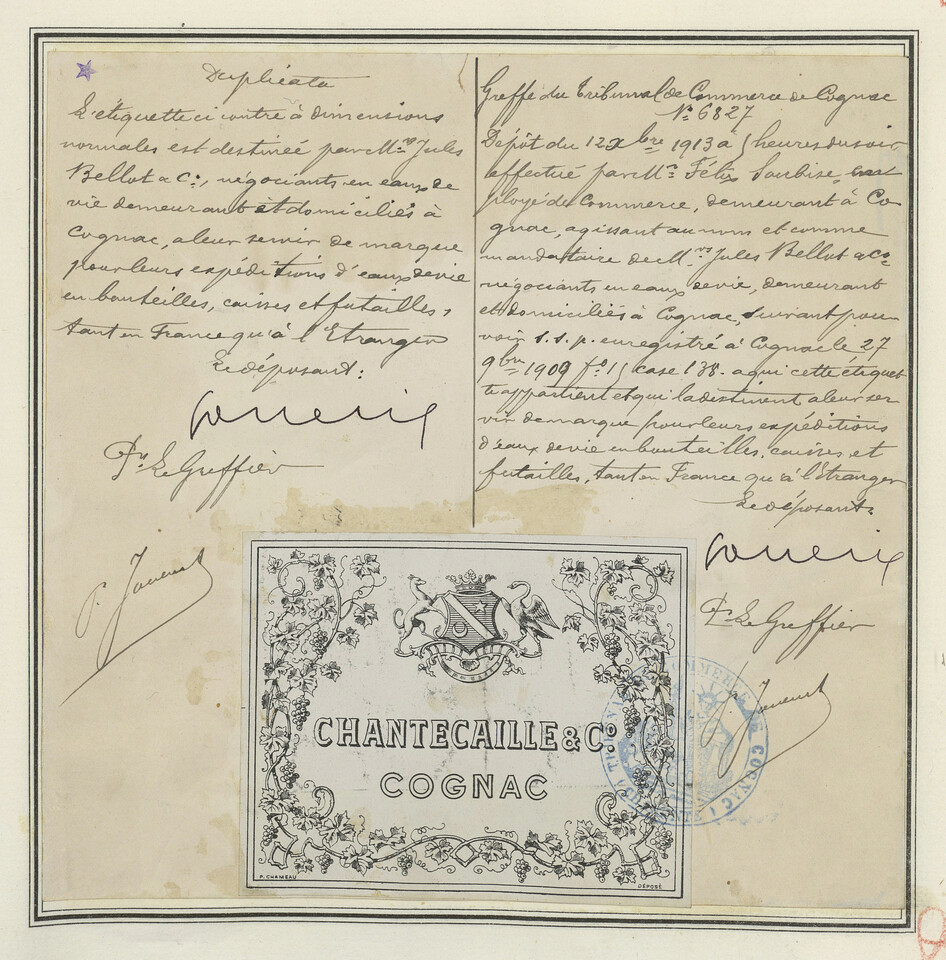 Duplicata
L'étiquette ci contre à dimensions
normales est destinée par Mrs Jules
Bellot & Co, négociants en eaux de
vie demeurant et domiciliés à
Cognac, a leur servir de marque
pour leurs expéditions d'eaux de vie
en bouteilles, caisses et futailles,
tant en France qu'à l'Etranger
Le déposant:
Pr Le Greffier
Greffe du Tribunal de Commerce de Cognac
No 6827
Dépôt du 12 Xbre 1913 a 5 heures du soir
effectué par Mr Félix Soubise, em
ployé de Commerce, demeurant à Co
gnac, agissant au nom et comme
mandataire de Mrs Jules Bellot & Co
négociants en eaux de vie, demeurant
et domiciliés à Cognac, suivant pou
voir s.s.p. enregistré à Cognac le 27
9bre 1909 fo 15 case 138. a qui cette étiquet
te appartient et qui la destinent a leur ser
vir de marque pour leurs expéditions
d'eaux de vie en bouteilles, caisses et
futailles, tant en France qu'à l'Etranger
Le déposant:
Pr Le Greffier
CHANTECAILLE & Co
COGNAC
P. CHAMEAU
DÉPOSÉ
TRIBUNAL DE COMMERCE DE COGNAC